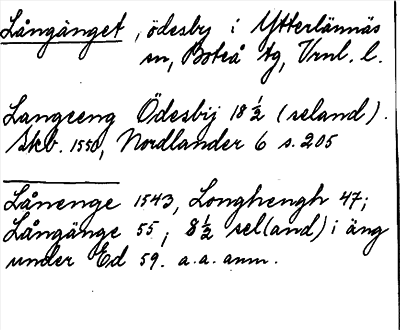 Långänget, ödesby i Ytterlännäs
sn, Boteå tg, Vrnl. l.
Langeeng Ödesbÿ 18 ½ (seland).
Skb. 1550, Nordlander 6 s. 205
Lånenge 1543, Longhengh 47;
Långänge 55; 8½ sel(and) i äng
under Ed 59. a.a. anm.